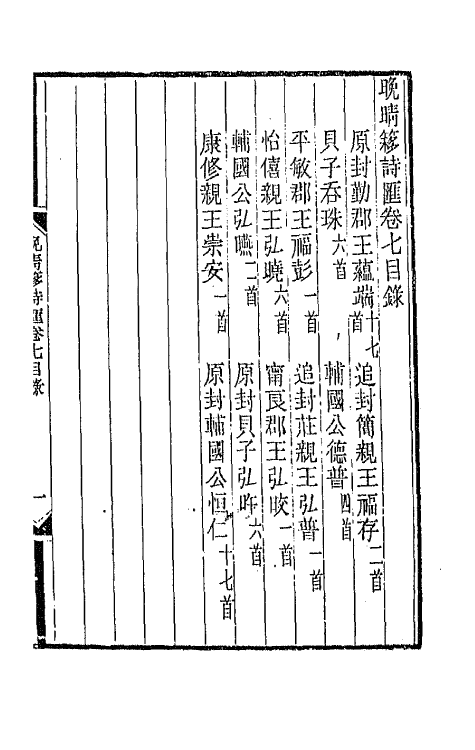 晚晴簃詩匯卷七目錄
原封勤郡王蘊端十七首　追封簡親王福存二首
貝子吞珠六首　輔國公德普四首
平敏郡王福彭一首　追封莊親王弘普一首
怡僖親王弘曉六首　甯良郡王弘晈一首
輔國公弘曣二首　原封貝子弘旿六首
康修親王崇安一首　原封輔國公恒仁十七首
晚晴簃詩匯卷七目錄　一